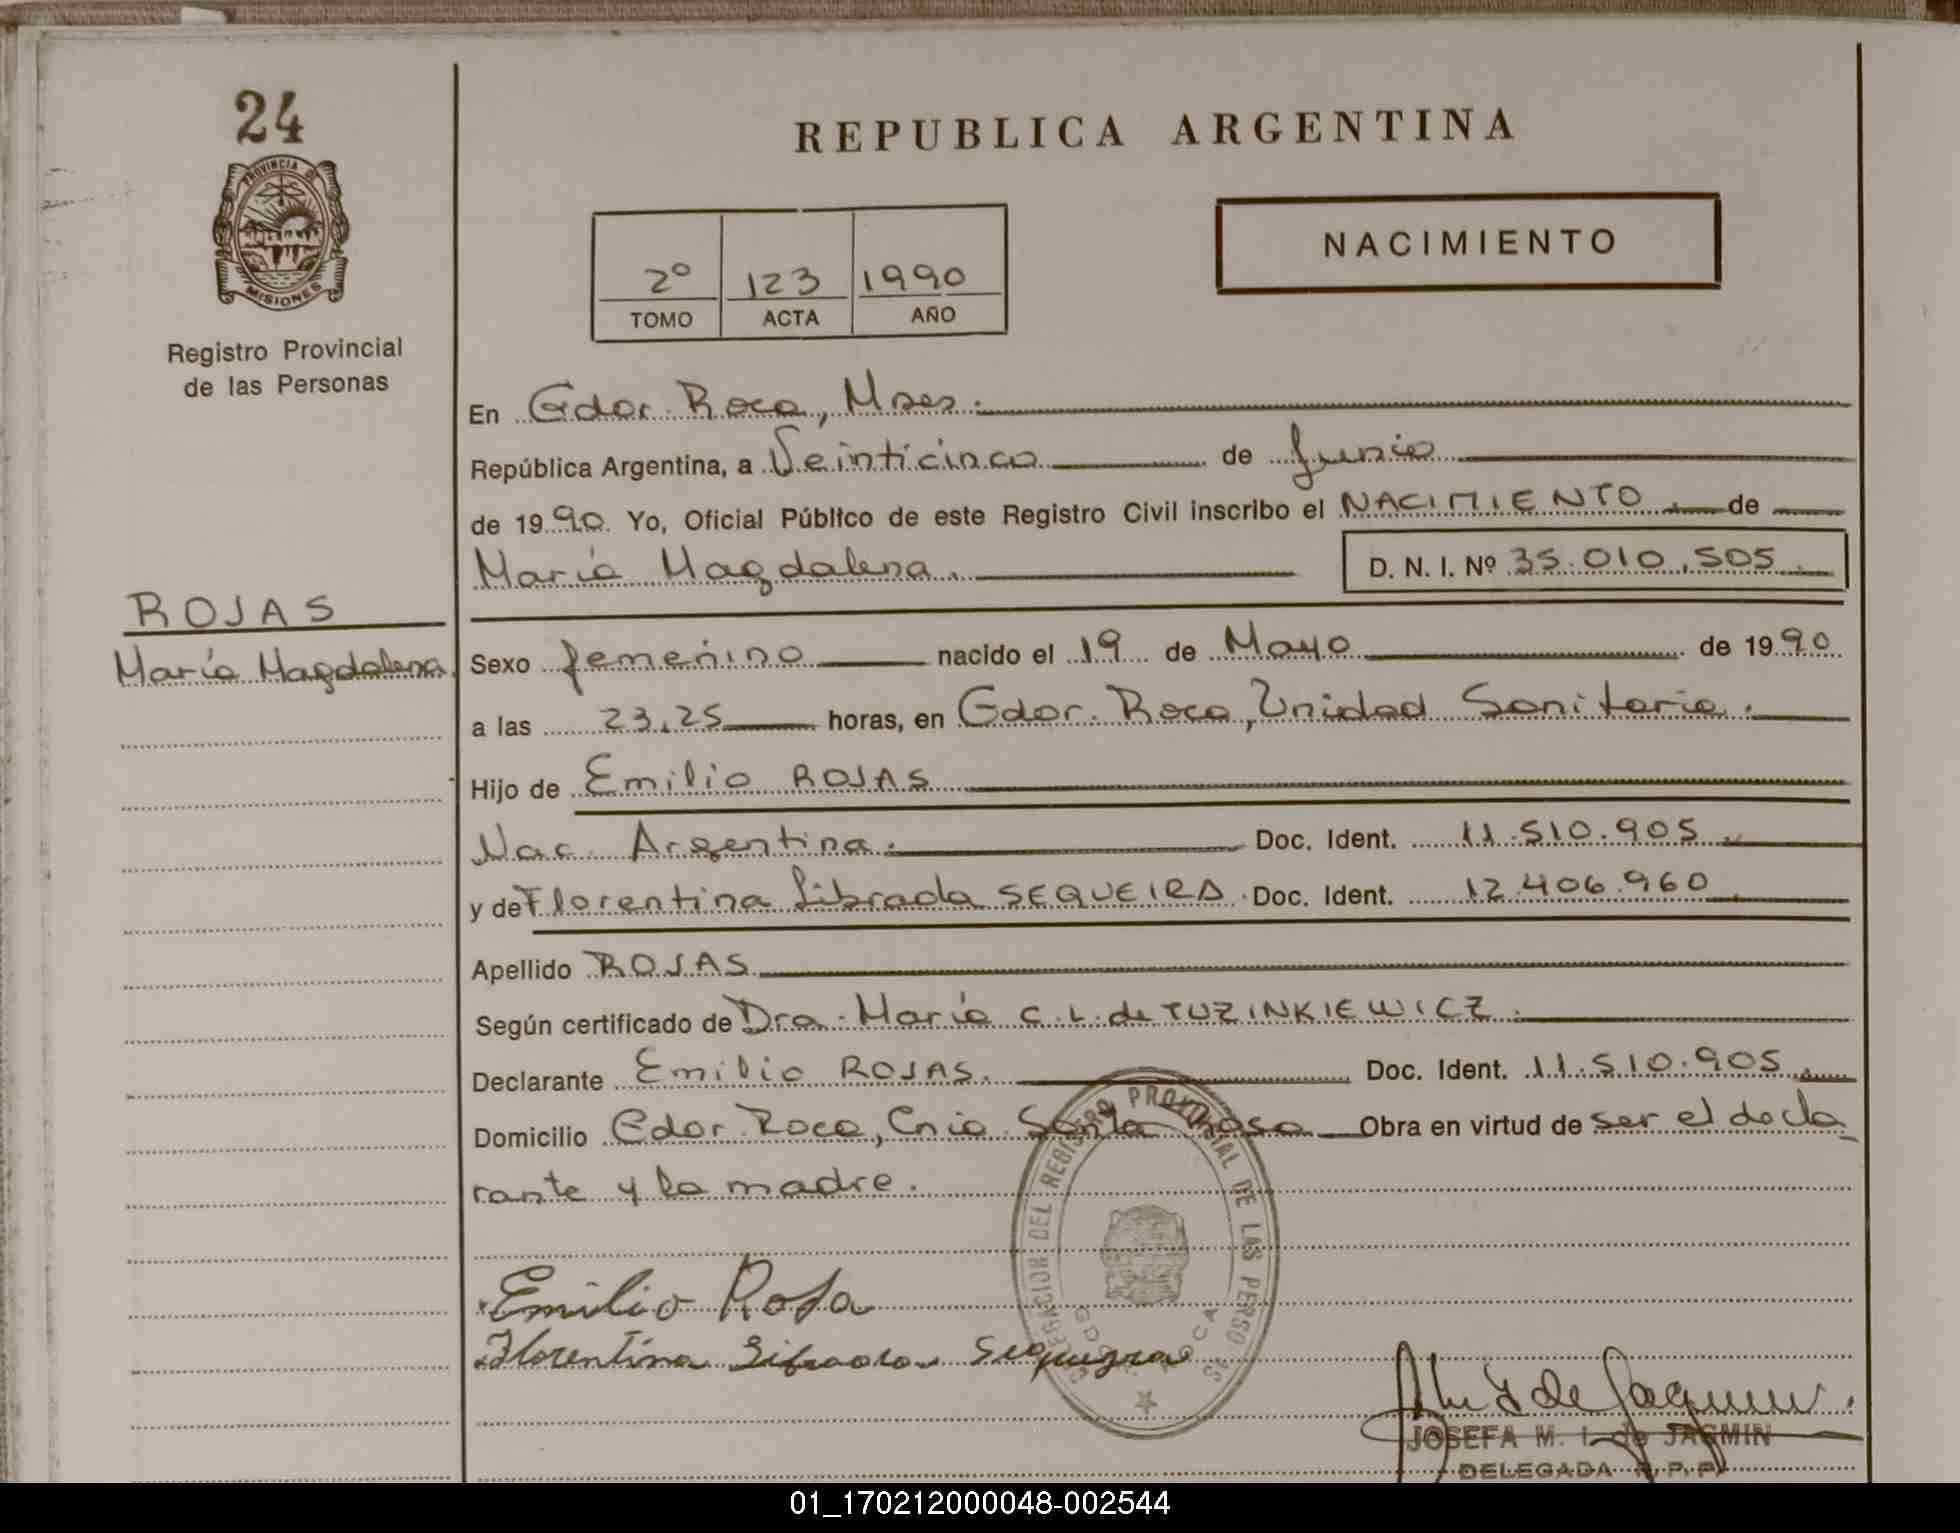 24
PROVINCIA DE
MISIONES
Registro Provincial
de las Personas
REPUBLICA ARGENTINA
NACIMIENTO
2º 123 1990
TOMO ACTA AÑO
En Gdor. Roca, Mnes.
República Argentina, a Veinticinco de Junio
de 1990. Yo, Oficial Público de este Registro Civil inscribo el NACIMIENTO. de
María Magdalena. D. N. I. Nº 35.010.505.
ROJAS
María Magdalena.
Sexo femenino nacido el 19 de Mayo de 1990.
a las 23,25 horas, en Gdor. Roca, Unidad Sanitaria.
Hijo de Emilio ROJAS
Nac. Argentina. Doc. Ident. 11.510.905
y de Florentina Librada SEQUEIRA. Doc. Ident. 12.406.960
Apellido ROJAS
Según certificado de Dra. María C. L. de TUZINKIEWICZ.
Declarante Emilio ROJAS. Doc. Ident. 11.510.905.
Domicilio Gdor. Roca, Cnia. Santa Rosa Obra en virtud de ser el decla_
rante y la madre.
DELEGACION DEL REGISTRO PROVINCIAL DE LAS PERSONAS
ROCA
Emilio Rosa
Florentina
JOSEFA M. I. de JAGMIN
DELEGADA R. P. P.
01_170212000048-002544